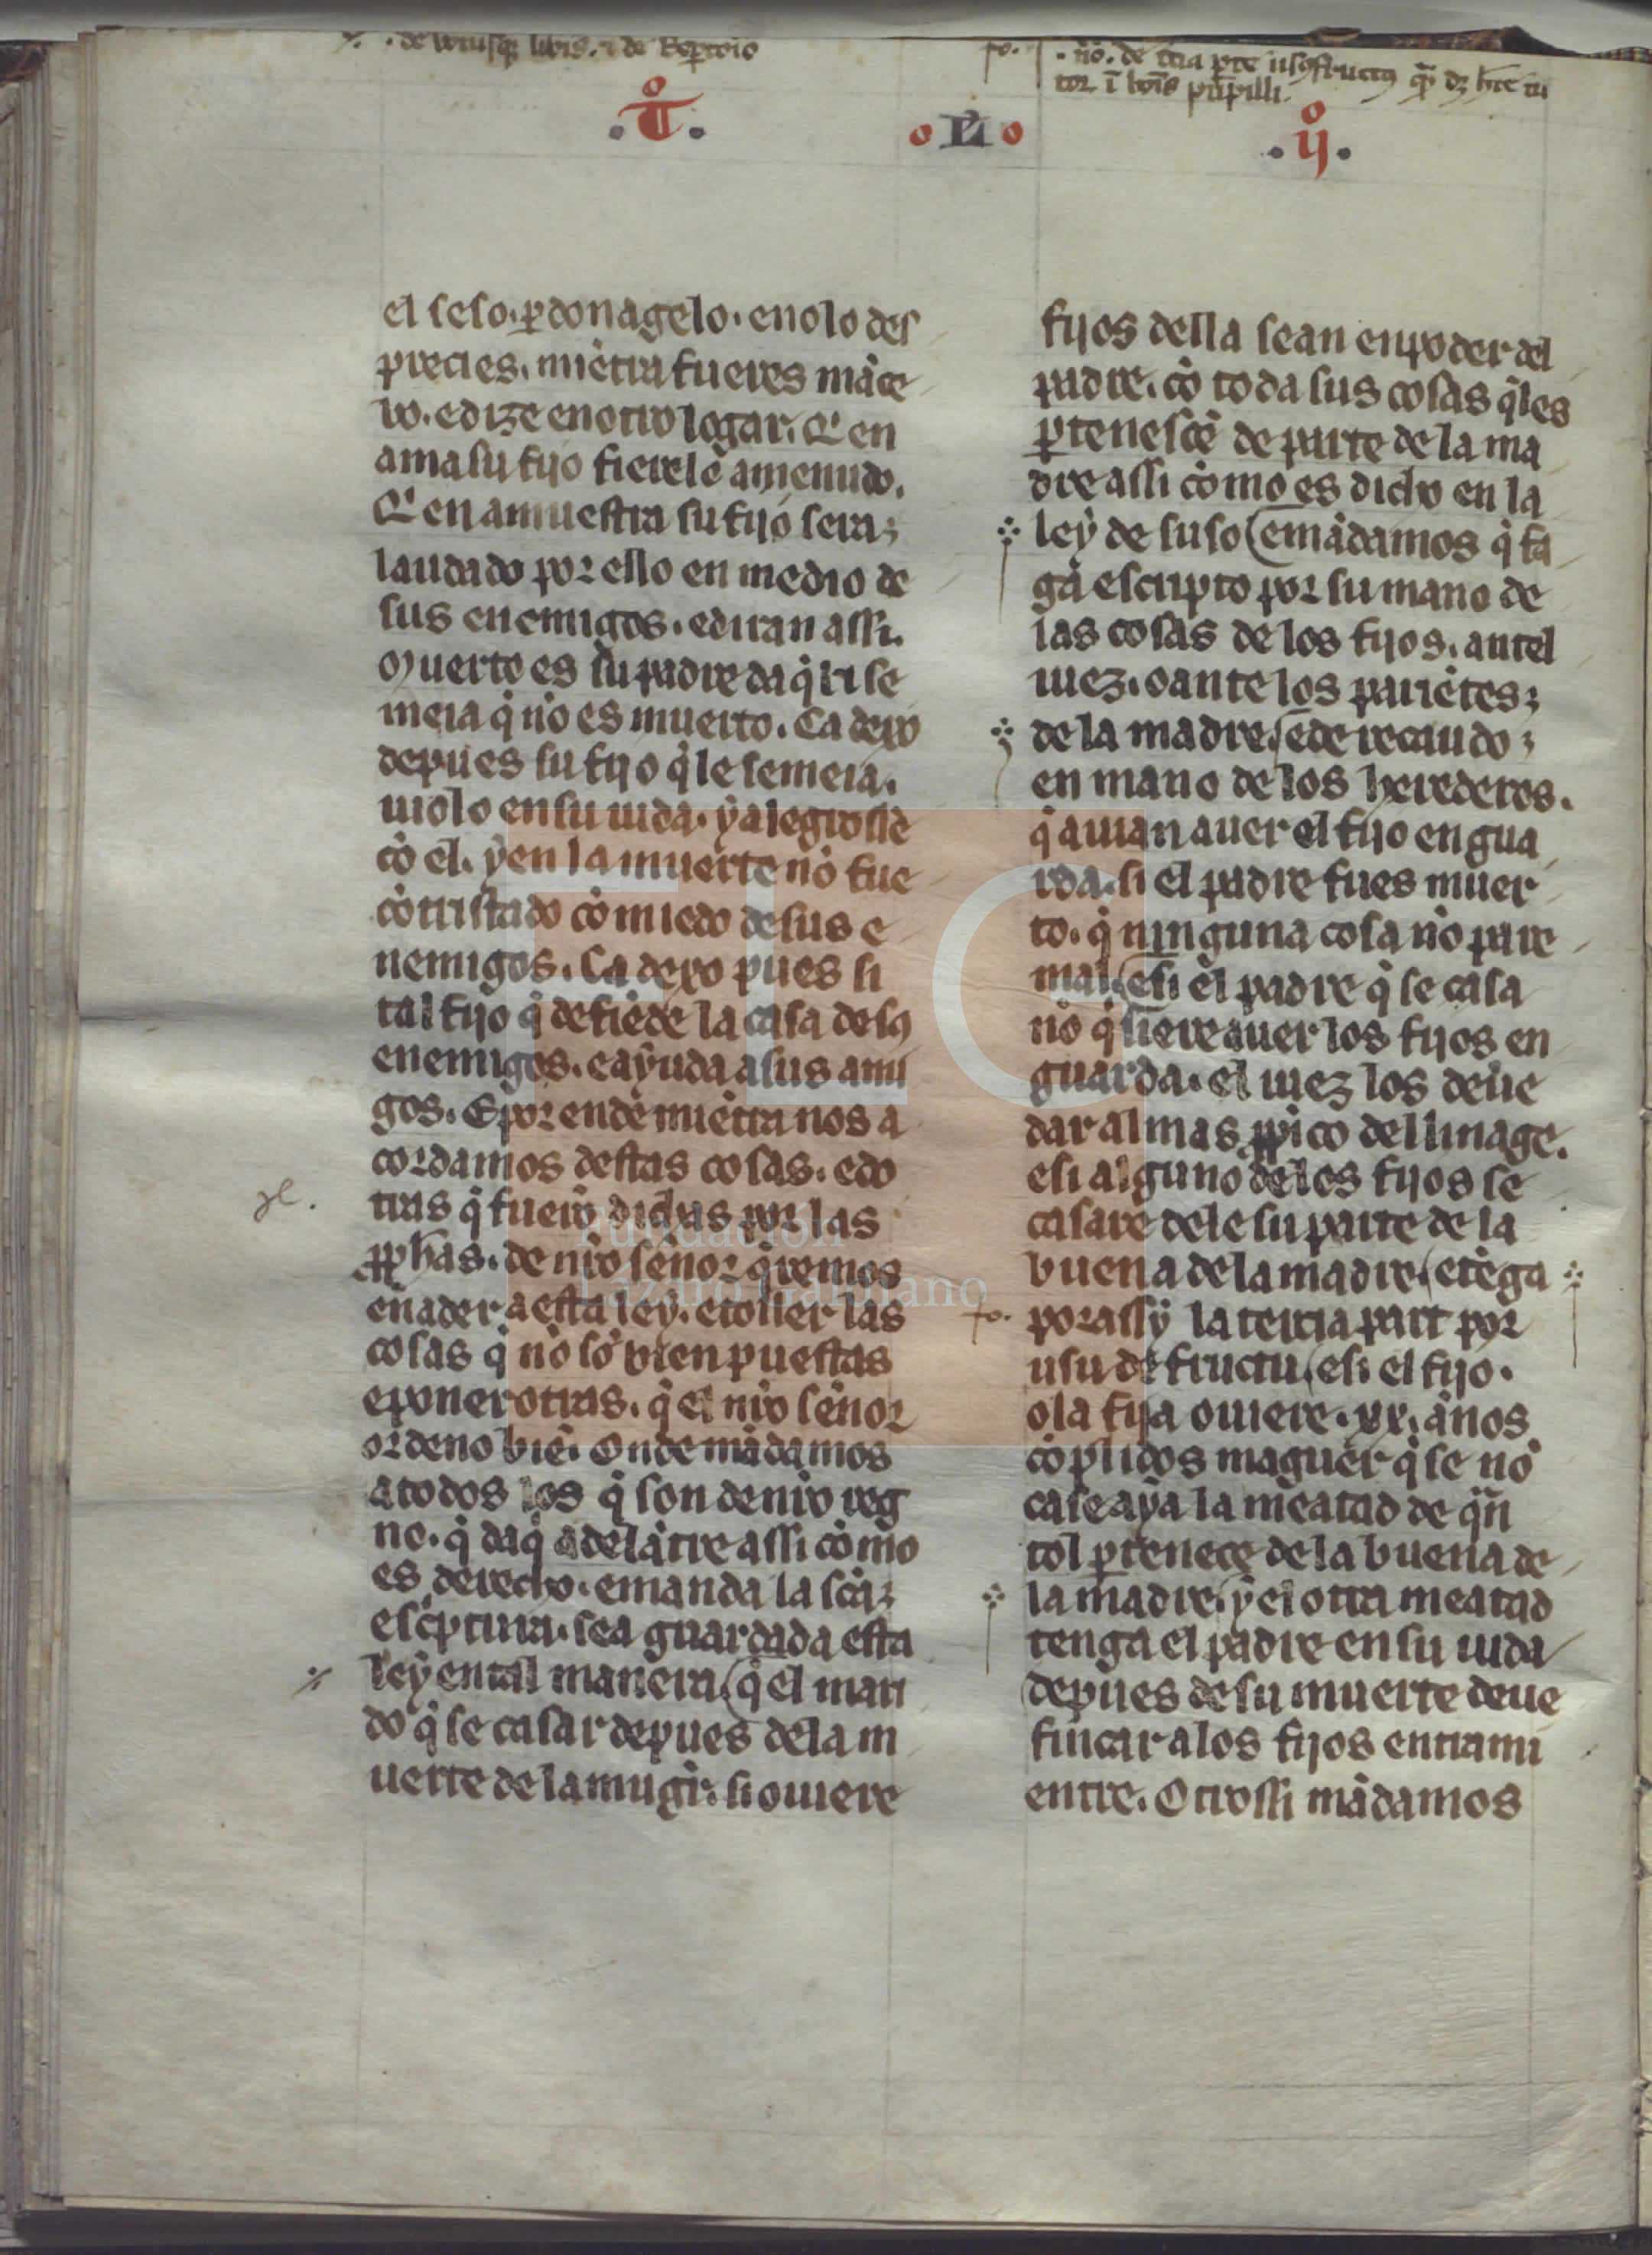 de utrusq̃ libris. ⁊ de Repertorio
fo. · no. de tria p̱te usufructus q̃ dz h̃re tu
tor ĩ bõis pupilli.
·T°· o L o ·ij°·
el seso. ꝑdonagelo. enolo des
precies. miẽtra fueres mãce
bo. edize enotro logar. Qͥen
ama su fijo fierelo amenudo.
Qͥen amuestra su fijo sera
laudado por ello en medio de
sus enemigos. ediran assi.
Muerto es su padre daq̃sti se
meia q̃ no es muerto. Ca dexo
depues su fijo q̃le semeia.
uiolo en su uida. y alegrosse
cõ el. y en la muerte nõ fue
cõtristado cõ miedo de sus e
nemigos. Ca dexo pues si
tal fijo q̃ defiẽde la casa de sus
enemigos. e ayuda a sus ami
gos. E por ende miẽtra nos a
cordamos destas cosas. edo
gl. tras q̃ fuerõ dichas por las
ꝓphas. de nr̃o señor q̃remos
eñader a esta ley. e toller las
cosas q̃ nõ sõ bien puestas
e poner otras. q̃ el nr̃o señor
ordeno biẽ. Onde mãdamos
a todos los q̃ son de nr̃o reg
no. q̃ daq̃ adelãtre assi como
es derecho. e manda la sc̃a
esc̃ptura. sea guardada esta
ley en tal manera q̃ el mari
do q̃ se casar depues dela m
uerte de la mugr̃. si ouiere
fijos della sean enpoder del
padre. cõ toda sus cosas q̃les
ꝑtenescẽ de parte de la ma
dre assi como es dicho en la
ley de suso e mãdamos q̃ fa
gã escripto por su mano de
las cosas de los fijos. antel
iuez. o ante los pariẽtes
de la madre. e de recaudo
en mano de los herederos.
q̃ auian auer el fijo en gua
rda. si el padre fues muer
to. q̃ ninguna cosa nõ pare
mal. e si el padre q̃ se casa
nõ q̃siere auer los fijos en
guarda. el iuez los deue
dar al mas ꝓpico del linage.
e si alguno de los fijos se
casare dele su parte de la
buena de la madre. e tẽga
fo. por assy la tercia part por
usu de fructu. e si el fijo.
o la fija ouiere. xx. años
cõplidos maguer q̃ se nõ
case aya la meatad de q̃n
tol ꝑtenece de la buena de
la madre. y el otra meatad
tenga el padre en su uida
depues de su muerte deue
fincar a los fijos entrami
entre. Otrossi mãdamos